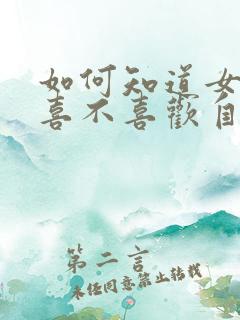 如何知道女
喜不喜歡自
第二言
未經同意禁止轉載